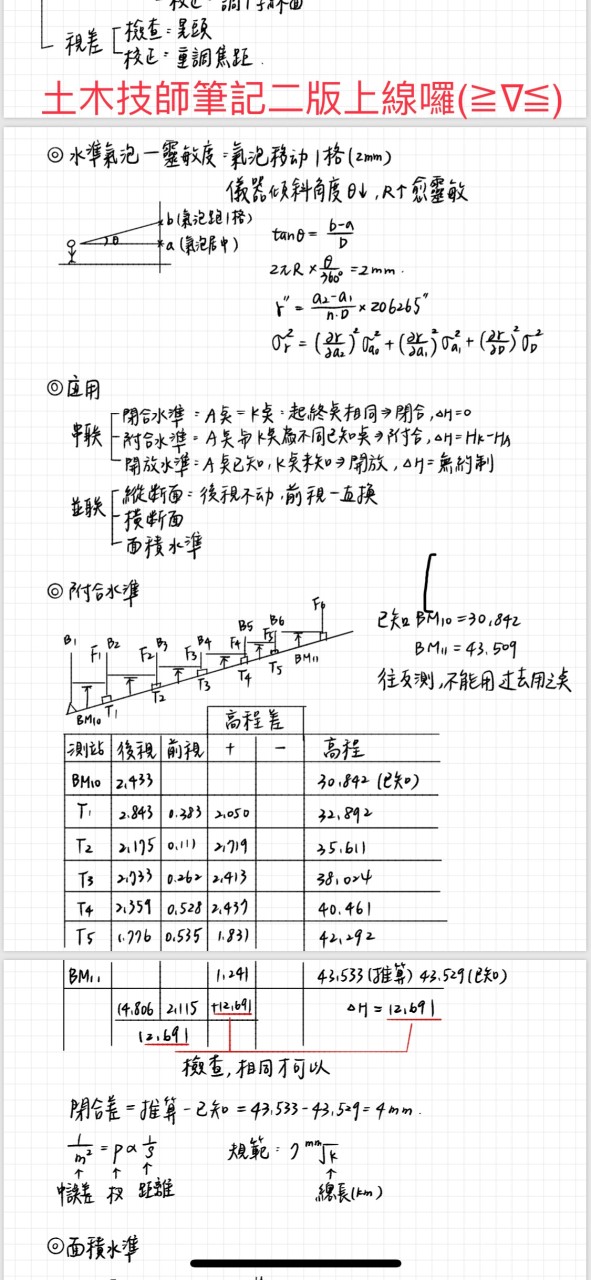 視差
檢查：晃頭
校正：重調焦距.
土木技師筆記二版上線囉(≧∇≦)
◎水準氣泡－靈敏度：氣泡移动1格(2mm)
儀器傾斜角度θ↓, R↑愈靈敏
b(氣泡跑1格)
θ
a(氣泡居中)
tanθ = (b-a)/D
2πR × θ/360° = 2mm.
r" = (a₂-a₁)/(n·D) × 206265"
σr² = (∂r/∂a₂)²σa₀² + (∂r/∂a₁)²σa₁² + (∂r/∂D)²σD²
◎应用
串联
閉合水準：A矣=K矣：起終矣相同⇒閉合,ΔH=0
附合水準：A矣与K矣為不同已知矣⇒附合,ΔH=HK-HA
開放水準：A矣已知,K矣未知⇒開放,ΔH=無約制
並联
縱断面：後視不动,前視一直換
橫断面
面積水準
◎附合水準
B1 F1 B2 F2 B3 F3 B4 F4 B5 F5 B6 F6
BM10 T1 T2 T3 T4 T5 BM11
已知 BM10 = 30.842
BM11 = 43.509
往反測,不能用过去用之矣
高程差
測站 後視 前視 + - 高程
BM10 2.433 30.842 (已知)
T1 2.843 0.383 2.050 32.892
T2 2.175 0.111 2.719 35.611
T3 2.733 0.262 2.413 38.024
T4 2.359 0.528 2.437 40.461
T5 1.776 0.535 1.831 42.292
BM11 1.241 43.533(推算) 43.529(已知)
14.806 2.115 +12.691 ΔH = 12.691
12.691
檢查,相同才可以
閉合差=推算-已知=43.533-43.529=4mm.
1/m² = p ∝ 1/S
規範：7mm√k
中誤差 权 距離
總長(km)
◎面積水準